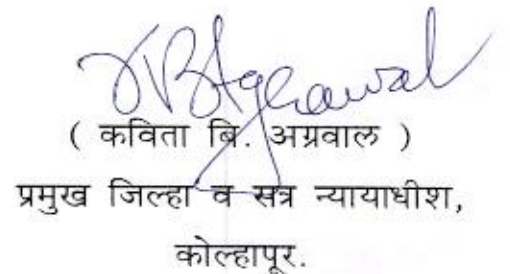 KBAgrawal
( कविता बि. अग्रवाल )
प्रमुख जिल्हा व सत्र न्यायाधीश,
कोल्हापूर.